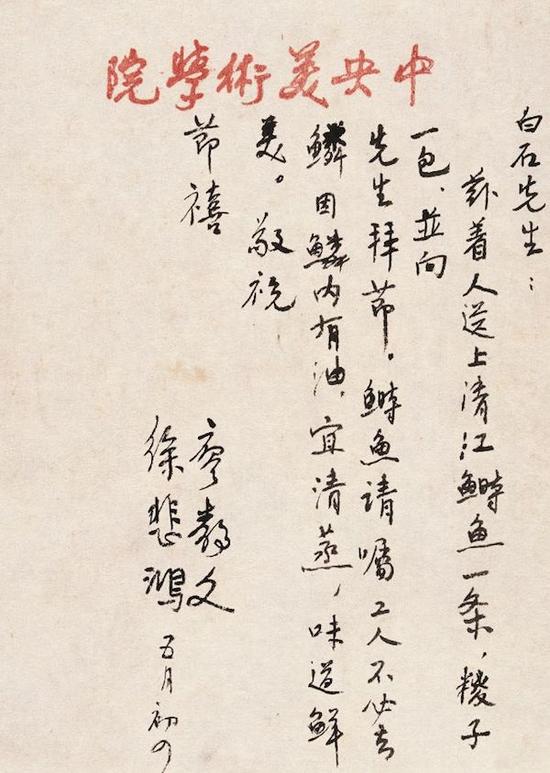 中央美術學院
白石先生：
茲着人送上清江鰣魚一条，糉子
一包、並向
先生拜節。鰣魚請囑工人不必去
鱗因鱗內有油，宜清蒸，味道鮮
美。敬祝
節禧
廖靜文
徐悲鴻 五月初四